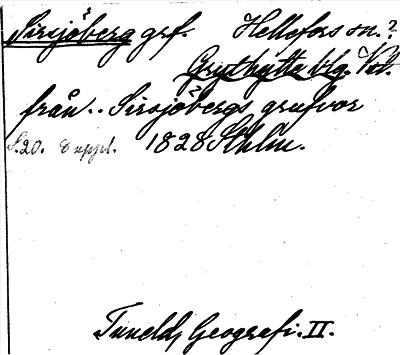 Sirsjöberg grf. Hellefors sn.?
Grythytte blg. Vstl.
från.. Sirsjöbergs grufvor
S.20. 8 uppl. 1828 Sthlm.
Tunelds Geografi. II.